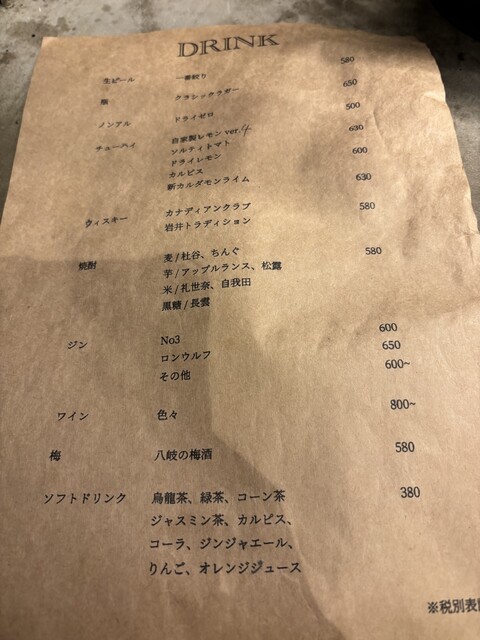 DRINK
生ビール 一番搾り 580
瓶 クラシックラガー 650
ノンアル ドライゼロ 500
チューハイ 自家製レモン ver.4 630
ソルティトマト
ドライレモン 600
カルピス
新カルダモンライム 630
ウィスキー カナディアンクラブ 580
岩井トラディション
焼酎 麦/杜谷、ちんぐ 580
芋/アップルランス、松露
米/礼世奈、自我田
黒糖/長雲
ジン No3 600
ロンウルフ 650
その他 600~
ワイン 色々 800~
梅 八岐の梅酒 580
ソフトドリンク 烏龍茶、緑茶、コーン茶 380
ジャスミン茶、カルピス、
コーラ、ジンジャエール、
りんご、オレンジジュース
※税別表